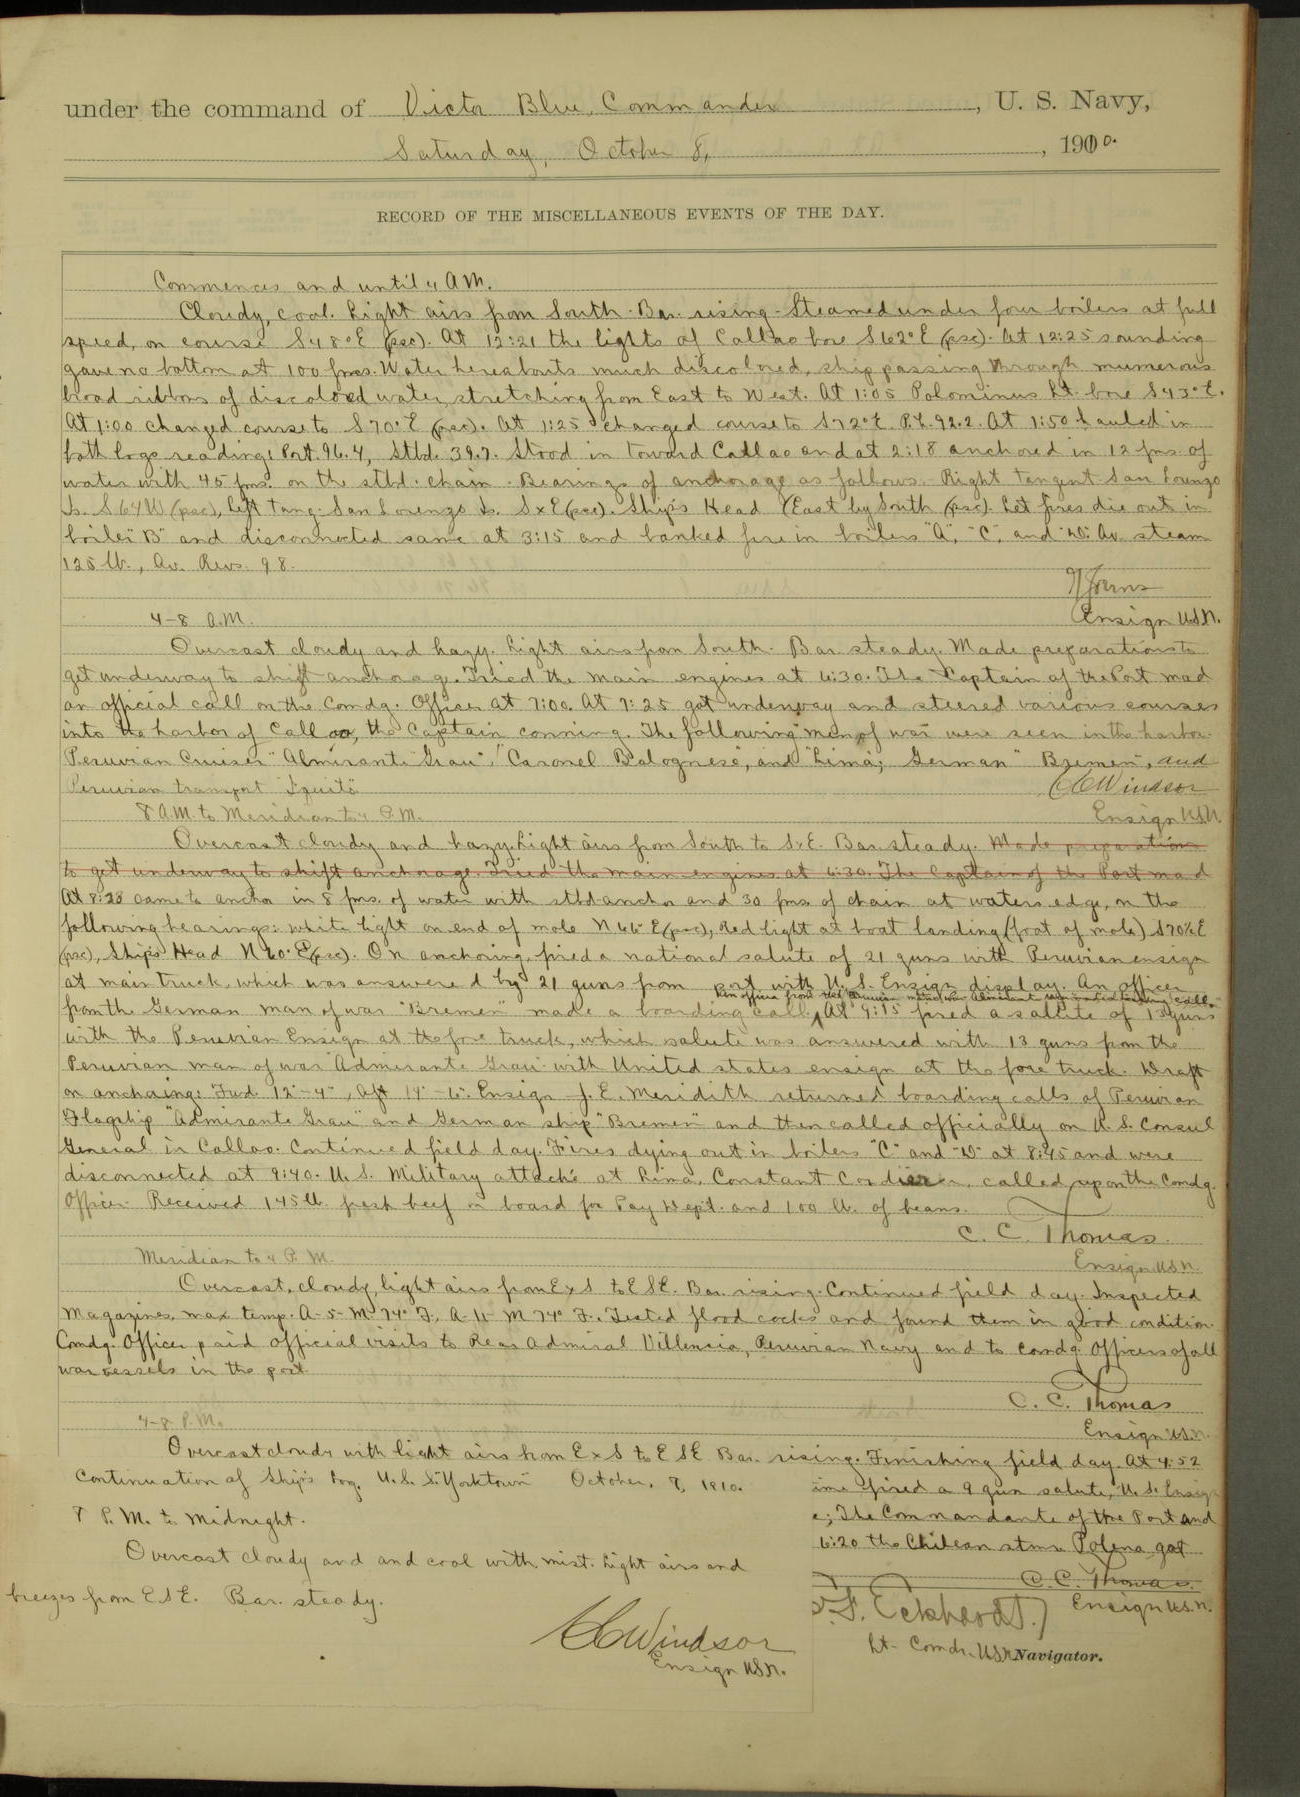 under the command of Victor Blue, Commander, U. S. Navy,
Saturday, October 8, 1910.
RECORD OF THE MISCELLANEOUS EVENTS OF THE DAY.
Commences and until 4 A.M.
Cloudy, cool. Light airs from South. Bar. rising. Steamed under four boilers at full
speed, on course S48°E (psc). At 12:21 the lights of Callao bore S62°E (psc). At 12:25 sounding
gave no bottom at 100 fms. Water hereabouts much discolored, ship passing through numerous
broad ribbons of discolored water, stretching from East to West. At 1:05 Polominus Lt. bore S43°E.
At 1:00 changed course to S70°E (psc). At 1:25 changed course to S72°E. P.L. 92.2. At 1:50 hauled in
both logs reading: Port. 96.4, Stbd. 39.7. Stood in toward Callao and at 2:18 anchored in 12 fms. of
water with 45 fms. on the stbd. chain. Bearings of anchorage as follows. Right tangent San Lorenzo
Is. S64W (psc), Left Tang. San Lorenzo Is. SxE (psc). Ship's Head (East by South (psc). Let fires die out in
boiler "B" and disconnected same at 3:15 and banked fire in boilers "A", "C", and "D". Av. steam
125 lb., Av. Revs. 98.
Ensign U.S.N.
4-8 A.M.
Overcast cloudy and hazy. Light airs from South. Bar. steady. Made preparations to
get underway to shift anchorage. Tried the main engines at 6:30. The Captain of the Port mad
an official call on the Comdg. Officer at 7:00. At 7:25 got underway and steered various courses
into the harbor of Callao, the Captain conning. The following men of war were seen in the harbor.
Peruvian Cruiser "Almirante Grau", "Coronel Bolognese", and "Lima", German "Bremen", and
Peruvian transport "Iquito"
C C Windsor
Ensign U.S.N.
8 A.M. to Meridian to 4 P.M.
Overcast cloudy and hazy. Light airs from South to SxE. Bar. steady. Made preparations
to get underway to shift anchorage. Tried the main engines at 6:30. The Captain of the Port mad
At 8:28 came to anchor in 8 fms. of water with stbd anchor and 30 fms. of chain at waters edge, on the
following bearings: white light on end of mole N46°E (psc), Red light at boat landing (foot of mole) S70½E
(psc), Ship's Head N60°E (psc). On anchoring, fired a national salute of 21 guns with Peruvian ensign
at main truck, which was answered by 21 guns from port with U. S. Ensign display. An officer
from the German man of war "Bremen" made a boarding call. At 9:15 fired a salute of 13 guns
with the Peruvian Ensign at the fore truck, which salute was answered with 13 guns from the
Peruvian man of war Admirante Grau with United states ensign at the fore truck. Draft
on anchoring: Fwd. 12'-4", Aft 14'-6". Ensign J. E. Meredith returned boarding calls of Peruvian
Flagship "Admirante Grau" and German ship "Bremen" and then called officially on U. S. Consul
General in Callao. Continued field day. Fires dying out in boilers "C" and "D" at 8:45 and were
disconnected at 9:40. U. S. Military attaché at Lima, Constant Cordier, called upon the Comdg.
Officer. Received 145 lb. fresh beef on board for Pay Dept. and 100 lb. of beans.
C. C. Thomas
Ensign U.S.N.
Meridian to 4 P.M.
Overcast, cloudy, light airs from ExS to ESE. Bar. rising. Continued field day. Inspected
Magazines, max temp. A-5-M 74° F., A-11-M 74° F. Tested flood cocks and found them in good condition.
Comdg. Officer paid official visits to Rear Admiral Villencia, Peruvian Navy and to Comdg. Officers of all
war vessels in the port.
C. C. Thomas
Ensign U.S.N.
4-8 P.M.
Overcast cloudy with light airs from ExS to ESE Bar. rising. Finishing field day. At 4:52
ime fired a 9 gun salute, U. S. Ensign
e; The Commandante of the Port and
6:20 the Chilean stmr. Polena got
C. C. Thomas
Ensign U.S.N.
Continuation of Ship's Log, U.S.S. Yorktown October, 8, 1910.
8 P.M. to Midnight.
Overcast cloudy and and cool with mist. Light airs and
breezes from ESE. Bar. steady.
C C Windsor
Ensign U.S.N.
F. Eckhardt
Lt- Comdr. USN Navigator.